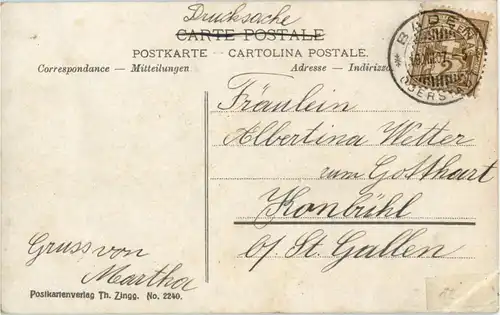 Drucksache
CARTE POSTALE
POSTKARTE - CARTOLINA POSTALE.
Correspondance - Mitteilungen
Adresse - Indirizzo
BADEN
Fräulein
Albertina Wetter
zum Gotthart
Konbühl
b/ St. Gallen
Gruss von
Martha
Postkartenverlag Th. Zingg. No. 2240.